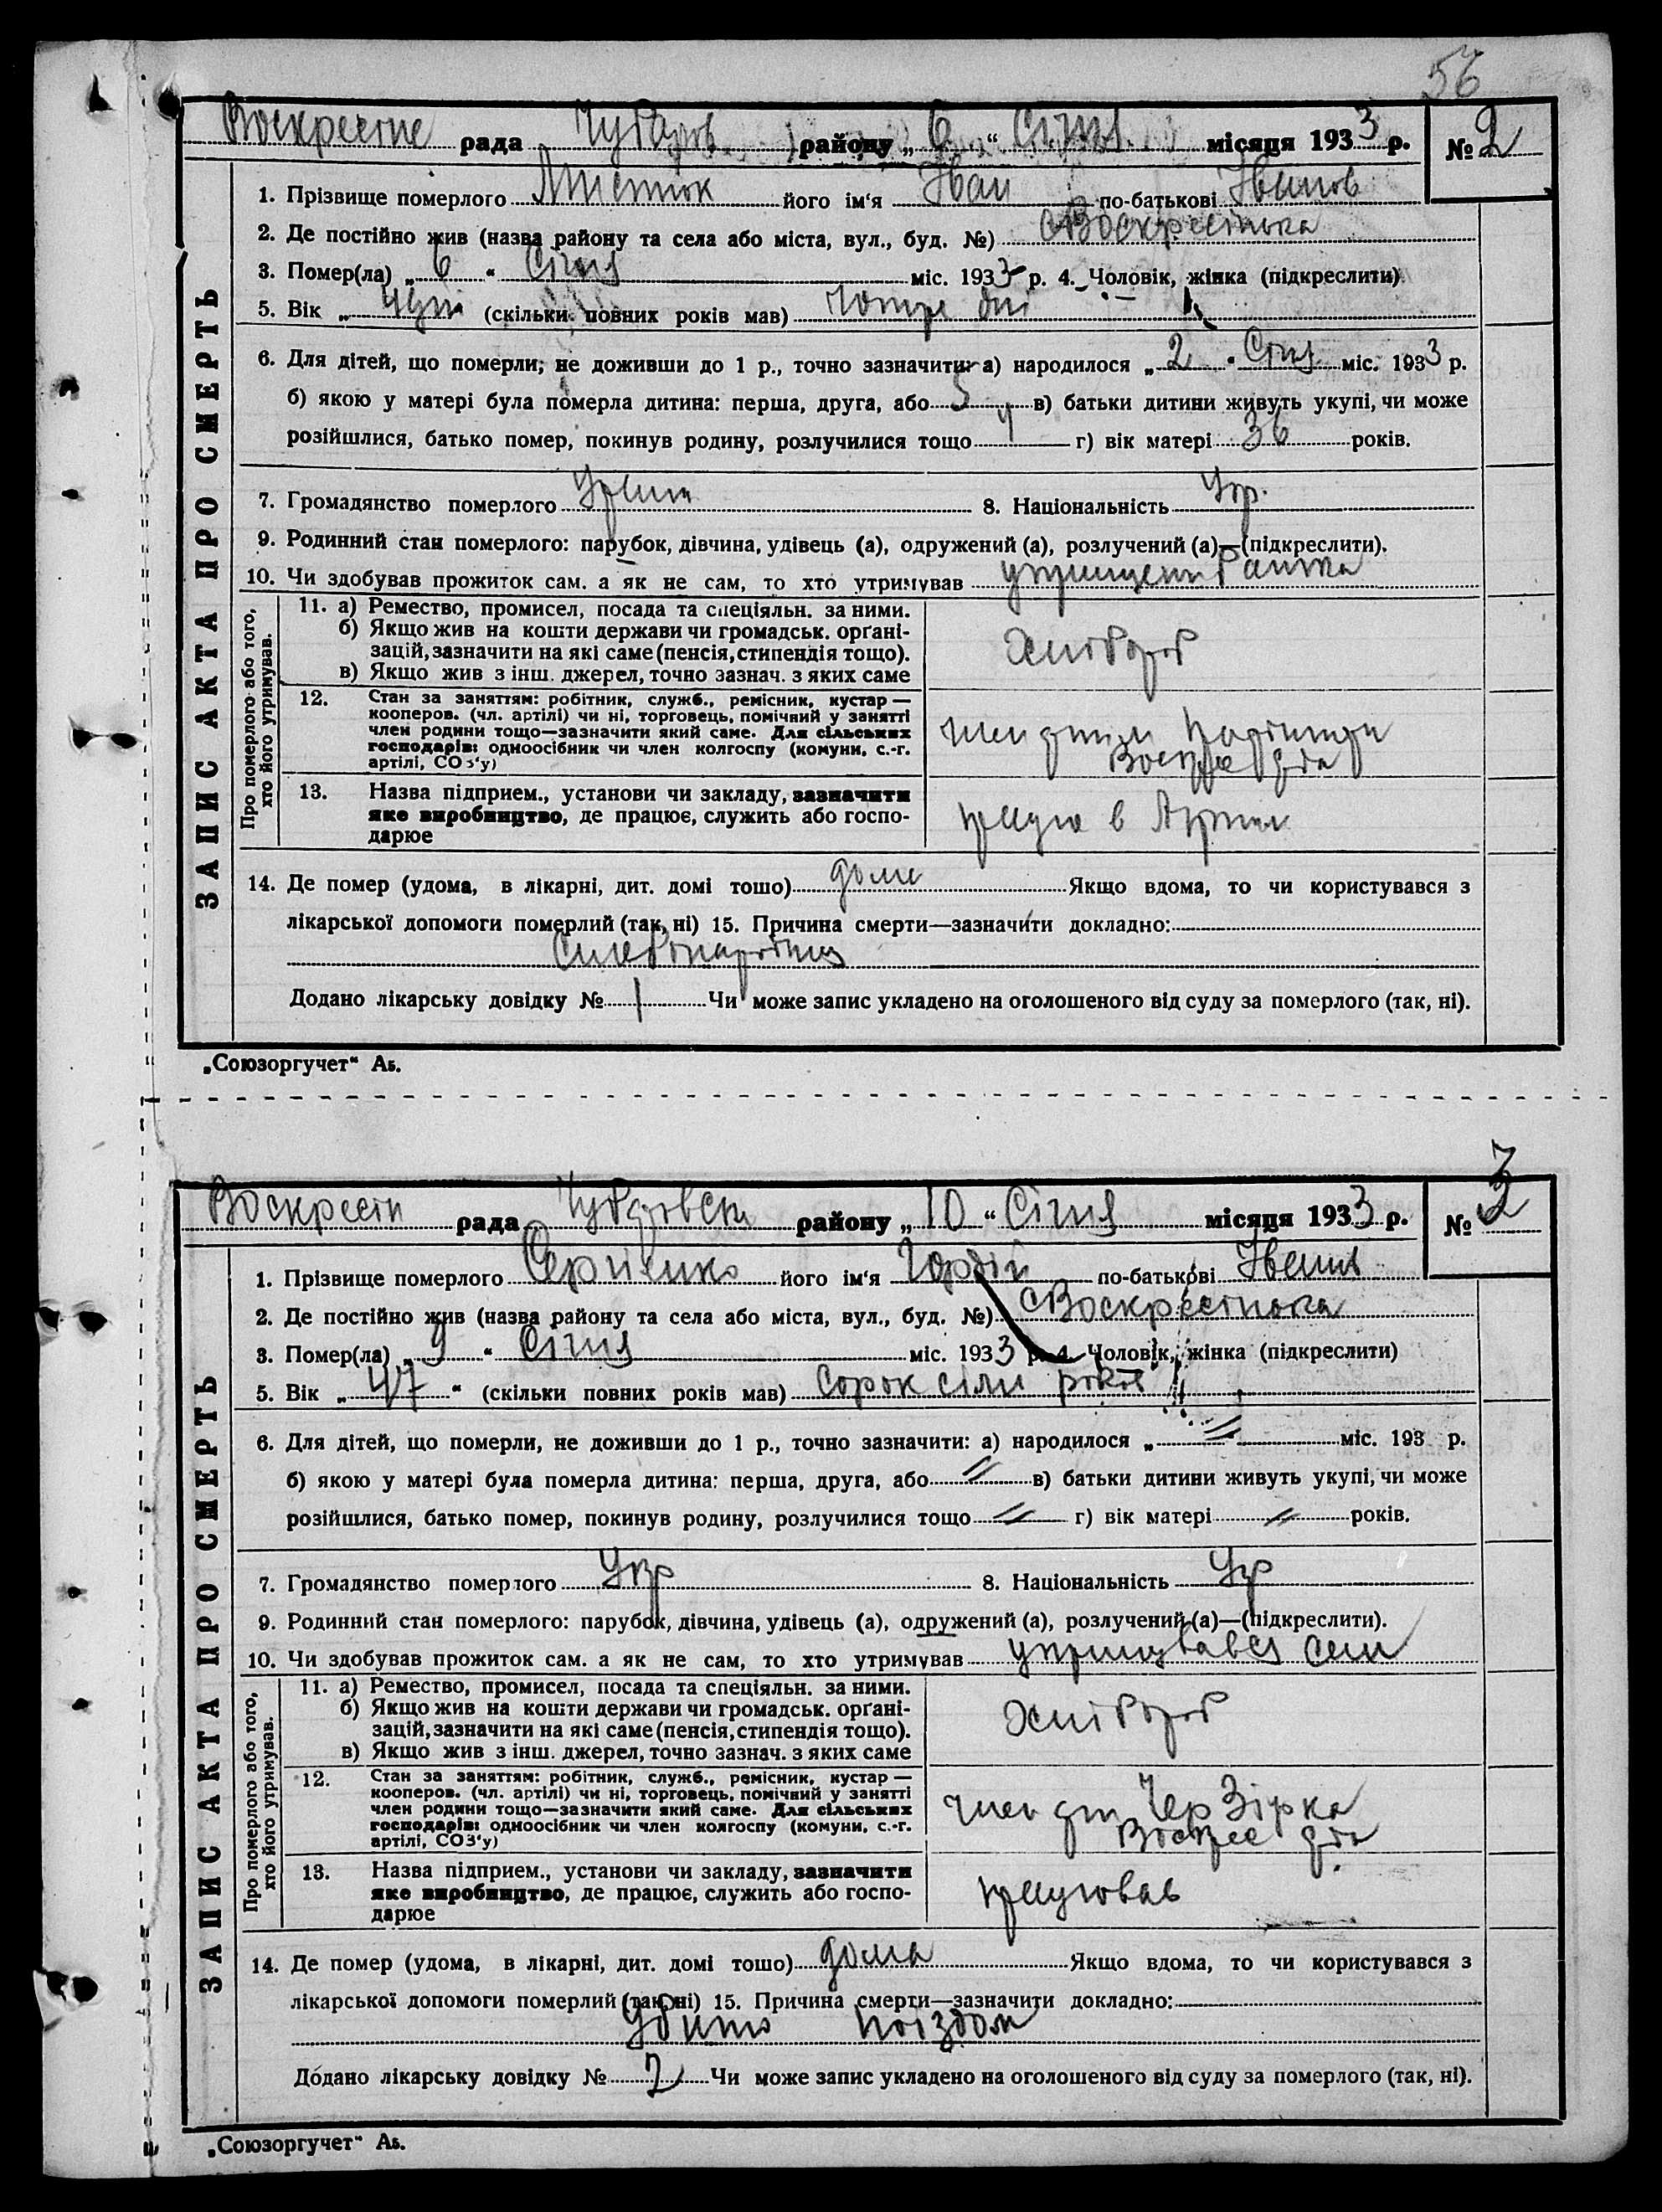 56
Воскресенс рада Чубарів району „ 6 “ Січня місяця 1933 р. № 2
ЗАПИС АКТА ПРО СМЕРТЬ
1. Прізвище померлого його ім‘я Іван по-батькові Іванов
2. Де постійно жив (назва району та села або міста, вул., буд. №) с Воскресенька
3. Помер(ла) „ 6 “ Січня міс. 1933 р. 4. Чоловік, жінка (підкреслити)
5. Вік „ 4 дні (скільки повних років мав) чотире дні
6. Для дітей, що померли, не доживши до 1 р., точно зазначити: а) народилося „ 2 “ Січня міс. 1933 р.
б) якою у матері була померла дитина: перша, друга, або 5 в) батьки дитини живуть укупі, чи може
розійшлися, батько помер, покинув родину, розлучилися тощо г) вік матері 36 років.
7. Громадянство померлого 8. Національність Укр.
9. Родинний стан померлого: парубок, дівчина, удівець (а), одружений (а), розлучений (а)—(підкреслити).
10. Чи здобував прожиток сам. а як не сам, то хто утримував
Про померлого або того, хто його утримував.
11. а) Ремество, промисел, посада та спеціяльн. за ними.
б) Якщо жив на кошти держави чи громадськ. орґані-
зацій, зазначити на які саме (пенсія, стипендія тощо).
в) Якщо жив з інш. джерел, точно зазнач. з яких саме
Хлібороб
12. Стан за заняттям: робітник, служб., ремісник, кустар —
кооперов. (чл. артілі) чи ні, торговець, помічний у занятті
член родини тощо—зазначити який саме. Для сільських
господарів: одноосібник чи член колгоспу (комуни, с.-г.
артілі, СОЗ‘у)
13. Назва підприєм., установи чи закладу, зазначити
яке виробництво, де працює, служить або госпо-
дарює
працює в Артіл
14. Де помер (удома, в лікарні, дит. домі тошо) дома Якщо вдома, то чи користувався з
лікарської допомоги померлий (так, ні) 15. Причина смерти—зазначити докладно:
Додано лікарську довідку № 1 Чи може запис укладено на оголошеного від суду за померлого (так, ні).
„Союзоргучет“ Аь.
Воскресен рада району „ 10 “ Січня місяця 1933 р. № 3
ЗАПИС АКТА ПРО СМЕРТЬ
1. Прізвище померлого Сергієнко його ім‘я Гордій по-батькові Іванов
2. Де постійно жив (назва району та села або міста, вул., буд. №) с Воскресенька
3. Помер(ла) „ 9 “ Січня міс. 1933 р. 4. Чоловік, жінка (підкреслити)
5. Вік „ 47 “ (скільки повних років мав) Сорок сім років
6. Для дітей, що померли, не доживши до 1 р., точно зазначити: а) народилося „ // міс. 193 р.
б) якою у матері була померла дитина: перша, друга, або // в) батьки дитини живуть укупі, чи може
розійшлися, батько помер, покинув родину, розлучилися тощо // г) вік матері // років.
7. Громадянство померлого Укр 8. Національність Укр
9. Родинний стан померлого: парубок, дівчина, удівець (а), одружений (а), розлучений (а)—(підкреслити).
10. Чи здобував прожиток сам. а як не сам, то хто утримував утримувався сам
Про померлого або того, хто його утримував.
11. а) Ремество, промисел, посада та спеціяльн. за ними.
б) Якщо жив на кошти держави чи громадськ. орґані-
зацій, зазначити на які саме (пенсія, стипендія тощо).
в) Якщо жив з інш. джерел, точно зазнач. з яких саме
Хлібороб
12. Стан за заняттям: робітник, служб., ремісник, кустар —
кооперов. (чл. артілі) чи ні, торговець, помічний у занятті
член родини тощо—зазначити який саме. Для сільських
господарів: одноосібник чи член колгоспу (комуни, с.-г.
артілі, СОЗ‘у)
член арт Чер Зірка
13. Назва підприєм., установи чи закладу, зазначити
яке виробництво, де працює, служить або госпо-
дарює
працював
14. Де помер (удома, в лікарні, дит. домі тошо) дома Якщо вдома, то чи користувався з
лікарської допомоги померлий (так, ні) 15. Причина смерти—зазначити докладно:
Убито поїздом
Додано лікарську довідку № 2 Чи може запис укладено на оголошеного від суду за померлого (так, ні).
„Союзоргучет“ Аь.